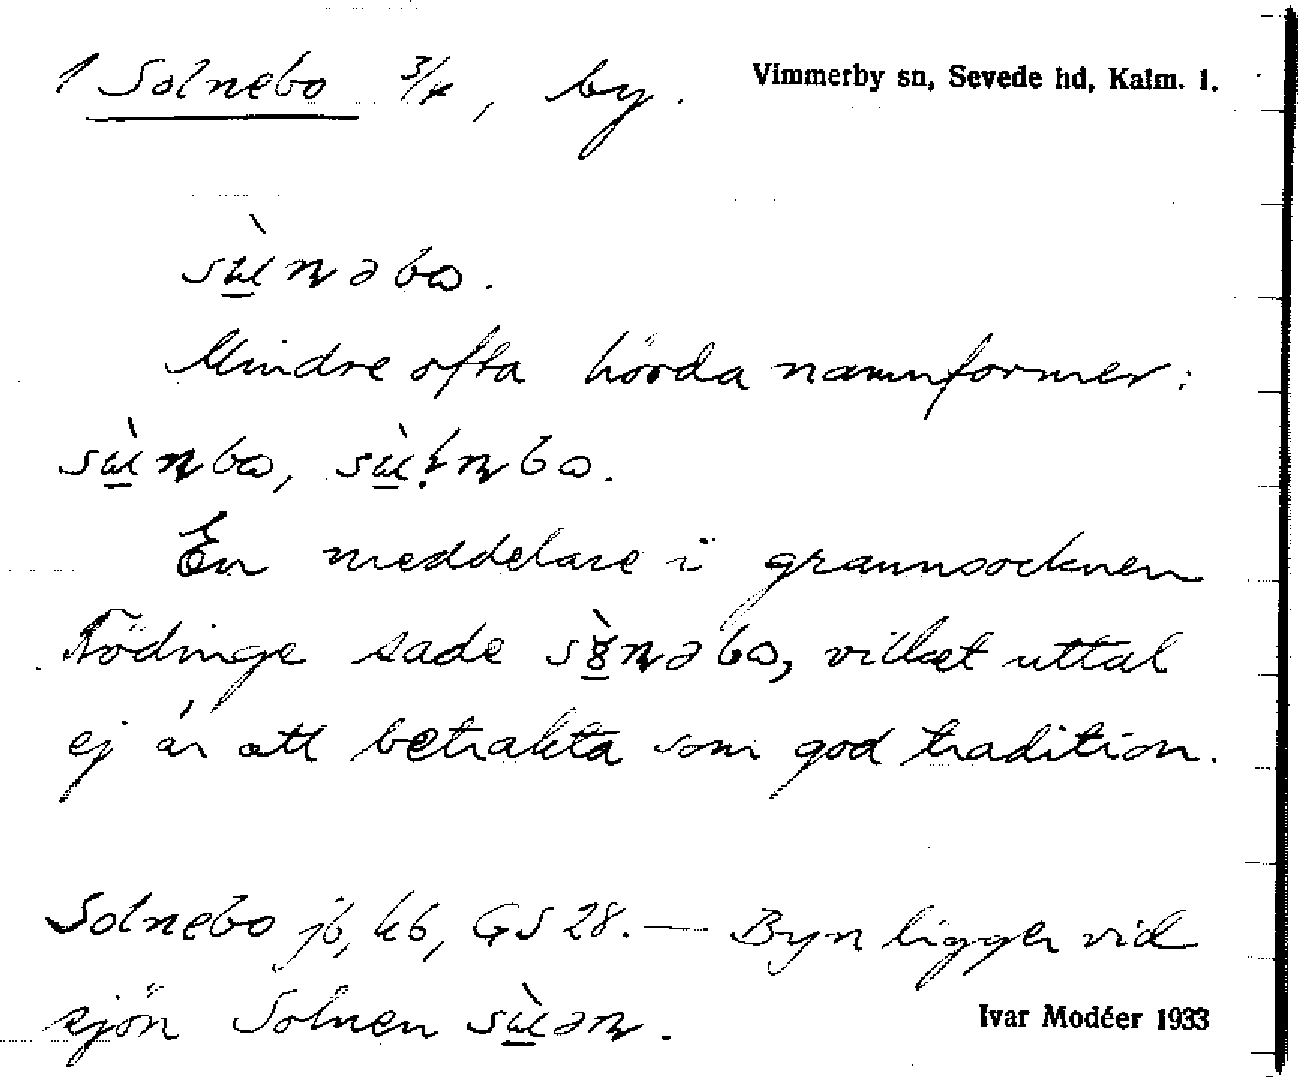 1 Solnebo 3/4, by.
Vimmerby sn, Sevede hd, Kalm. l.
Mindre ofta hörda namnformer:
En meddelare i grannsocknen
Södinge sade vilket uttal
ej är att betrakta som god tradition.
Solnebo jb, kb, GS 28. — Byn ligger vid
sjön Solnen
Ivar Modéer 1933